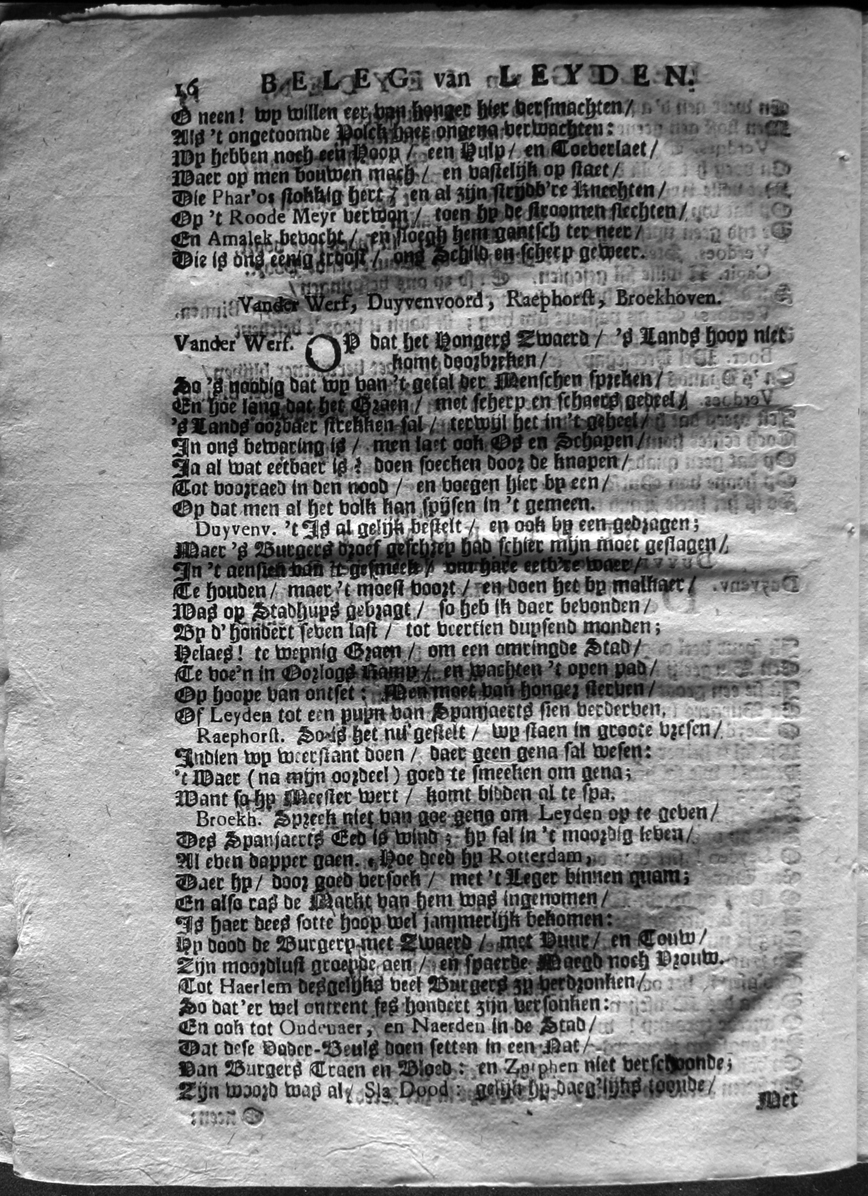 16 BELEG van LEYDEN.
O neen! wy willen eer van honger hier versmachten/
Als 't ongetoomde Volck haer ongena verwachten:
Wy hebben noch een Hoop / een Hulp / en Toeverlaet /
Waer op men bouwen mach / en vastelijk op staet /
Die Phar'os stokkig hert / en al zijn strijdb're knechten /
Op 't Roode Meyr verwon / toen hy de stroomen slechten /
En Amalek bevocht / en sloegh hem gantsch ter neer /
Die is ons eenig troost / ons Schild en scherp geweer.
Vander Werf, Duyvenvoord, Raephorst, Broekhoven.
Vander Werf. OP dat het Hongers Zwaerd / 's Lands hoop niet
komt doorbreken /
So 's noodig dat wy van 't getal der Menschen spreken /
En hoe lang dat het Graen / met scherp en schaers gedeel /
's Lands oorbaer strekken sal / terwijl het in 't geheel /
In ons bewaring is / men laet ook Os en Schapen /
Ja al wat eetbaer is / doen soecken door de knapen /
Tot voorraed in den nood / en voegen hier by een /
Op dat men al het volk kan spijsen in 't gemeen.
Duyvenv. 't Is al gelijk bestelt / en ook by een gedragen;
Maer 's Burgers droef geschrey had schier mijn moet geslagen /
In 't aensien van 't gesmeek / om hare eetb're waer /
Te houden / maer 't moest voort / en doen het by malkaer /
Was op Stadhuys gebragt / so heb ik daer bevonden /
By d' hondert seven last / tot veertien duysend monden;
Helaes! te weynig Graen / om een omringde Stad /
Te voe'n in Oorlogs kamp / en wachten 't open pad /
Op hoope van ontset: Men moet van honger sterven /
Of Leyden tot een puyn van Spanjaerts sien verderven.
Raephorst. So is het nu gestelt / wy staen in groote vresen /
Indien wy weerstant doen / daer geen gena sal wesen:
't Waer (na mijn oordeel) goed te smeeken om gena;
Want so hy Meester wert / komt bidden al te spa.
Broekh. Spreek niet van goe gena om Leyden op te geven /
Des Spanjaerts Eed is wind; hy sal in 't moordig leven /
Al even dapper gaen. Hoe deed hy Rotterdam,
Daer hy / door goed versoek / met 't Leger binnen quam;
En also ras de Markt van hem was ingenomen /
Is haer dees sotte hoop wel jammerlijk bekomen:
Hy dood de Burgery met Zwaerd / met Vuur / en Touw /
Zijn moordlust groeyde aen / en spaerde Maegd noch Vrouw.
Tot Haerlem desgelijks veel Burgers zy verdronken /
So dat'er wel ontrent ses hondert zijn versonken:
En ook tot Oudewaer, en Naerden in de Stad /
Dat dese Vader-Beuls doen setten in een Nat /
Van Burgers Traen en Bloed: en Zutphen niet verschoonde;
Zijn woord was al / Sla Dood: gelijk hy daeg'lijks toonde /
Met